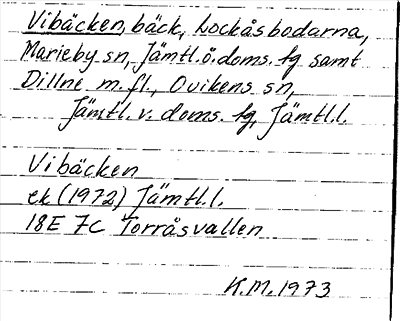 Vibäcken, bäck, Lockåsbodarna,
Marieby sn, Jämtl.ö.doms. hg samt
Dillne m.fl., Ovikens sn,
Jämtl.v. doms. hg, Jämtl.l.
Vibäcken
ek (1972) Jämtl.l.
18E 7C Torråsvallen
K.M. 1973